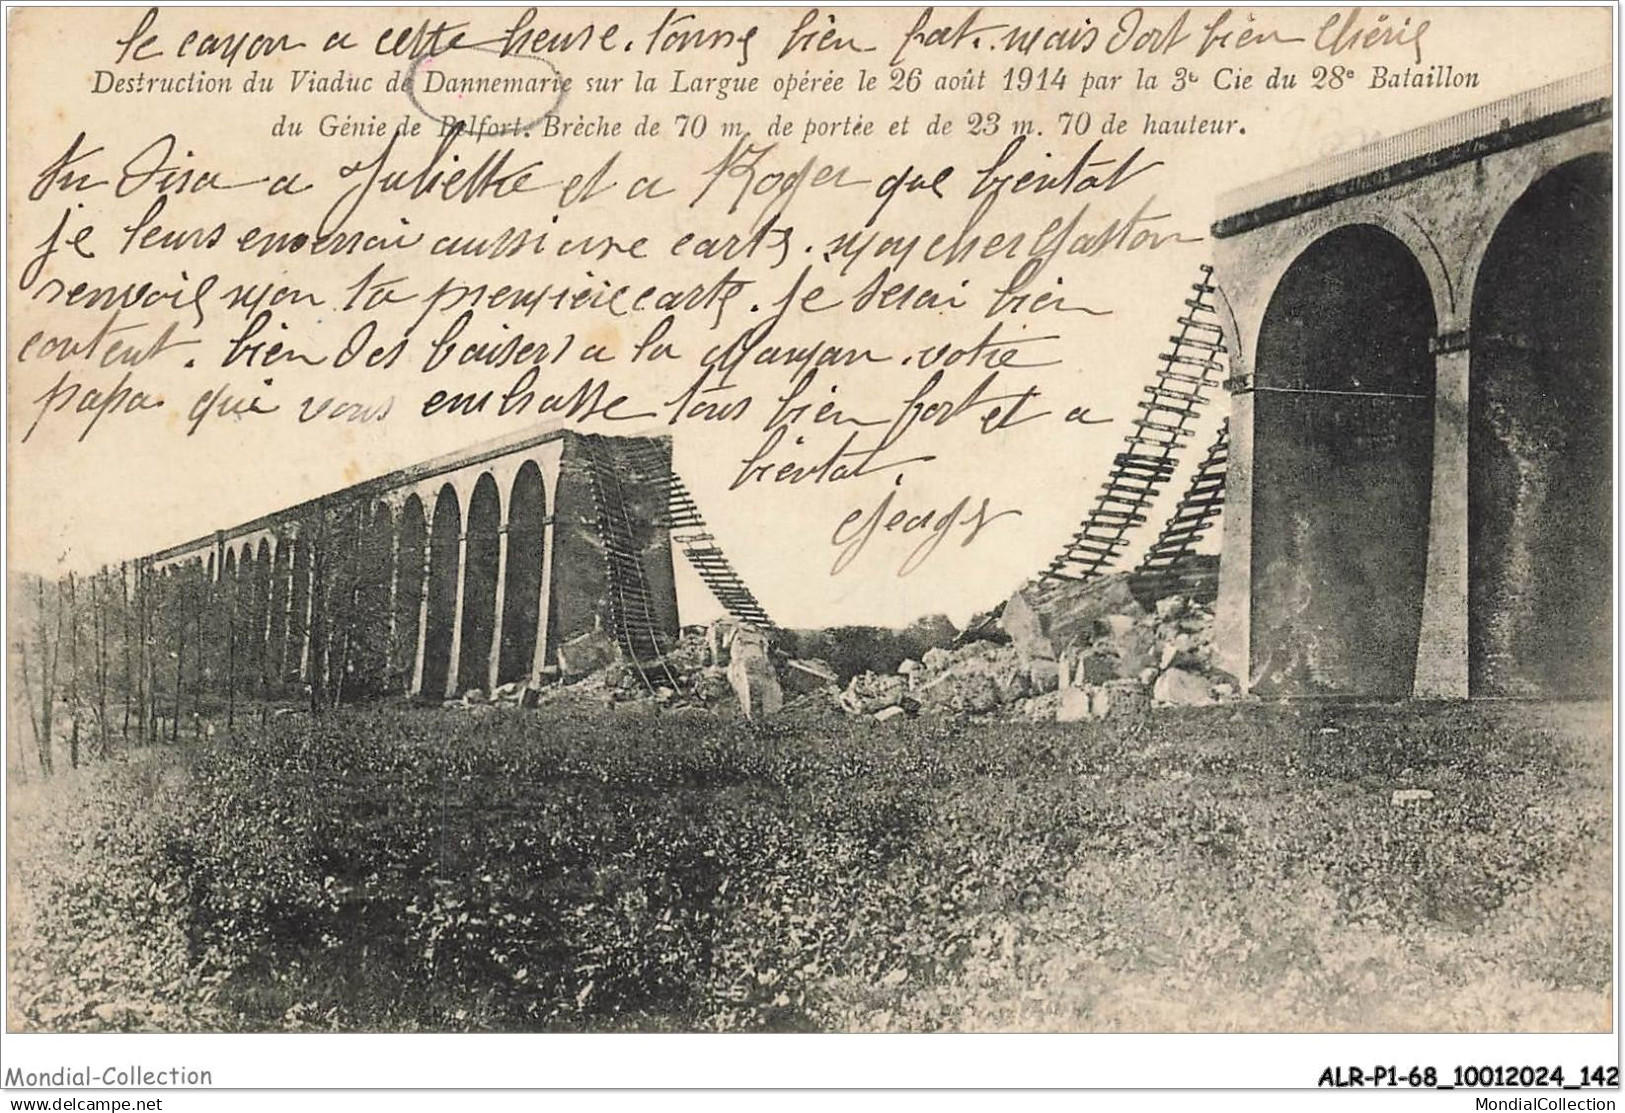 le canon a cette heure. tonne bien fort. mais dort bien Chérie
Destruction du Viaduc de Dannemarie sur la Largue opérée le 26 août 1914 par la 3e Cie du 28e Bataillon
du Génie de Belfort. Brèche de 70 m. de portée et de 23 m. 70 de hauteur.
tu dira a Juliette et a Roger que bientôt
je leurs enverrai aussi une carte. mon cher Gaston
renvoie mon ta première carte. je serai bien
content. bien des baisers a la maman. votre
papa qui vous embrasse tous bien fort et a
bientôt.
Georges
Mondial-Collection
ALR-P1-68_10012024_142
mondial-collection
MondialCollection